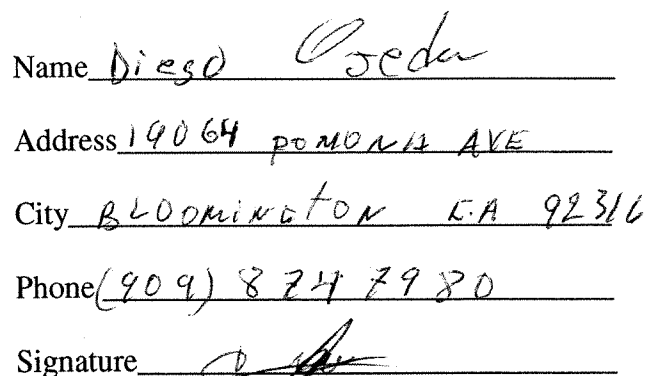 Name Diego Ojeda
Address 19064 POMONA AVE
City BLOOMINGTON C.A 92316
Phone (909) 874 7980
Signature